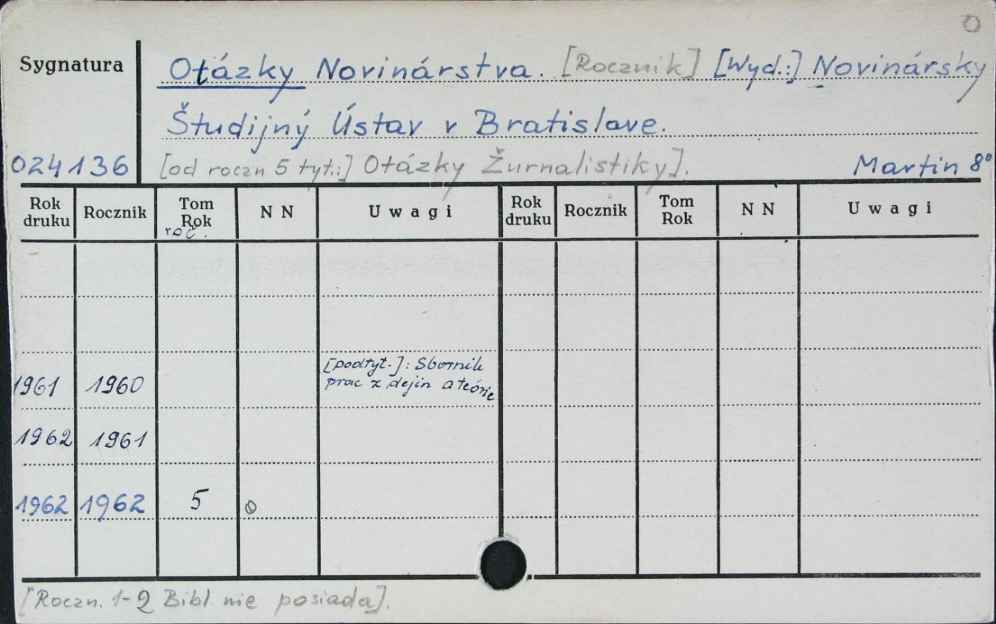 0
Sygnatura
Otázky Novinárstva. [Rocznik] [Wyd.:] Novinársky
Študijný Ústav v Bratislave.
024136 [od roczn 5 tyt.:] Otázky Žurnalistiky]. Martin 8°
Rok druku Rocznik Tom Rok roč. N N Uwagi Rok druku Rocznik Tom Rok N N Uwagi
[podtyt.]: Sbornik
1961 1960 prac z dejin a teórie
1962 1961
1962 1962 5 0
[Roczn. 1-2 Bibl. nie posiada].